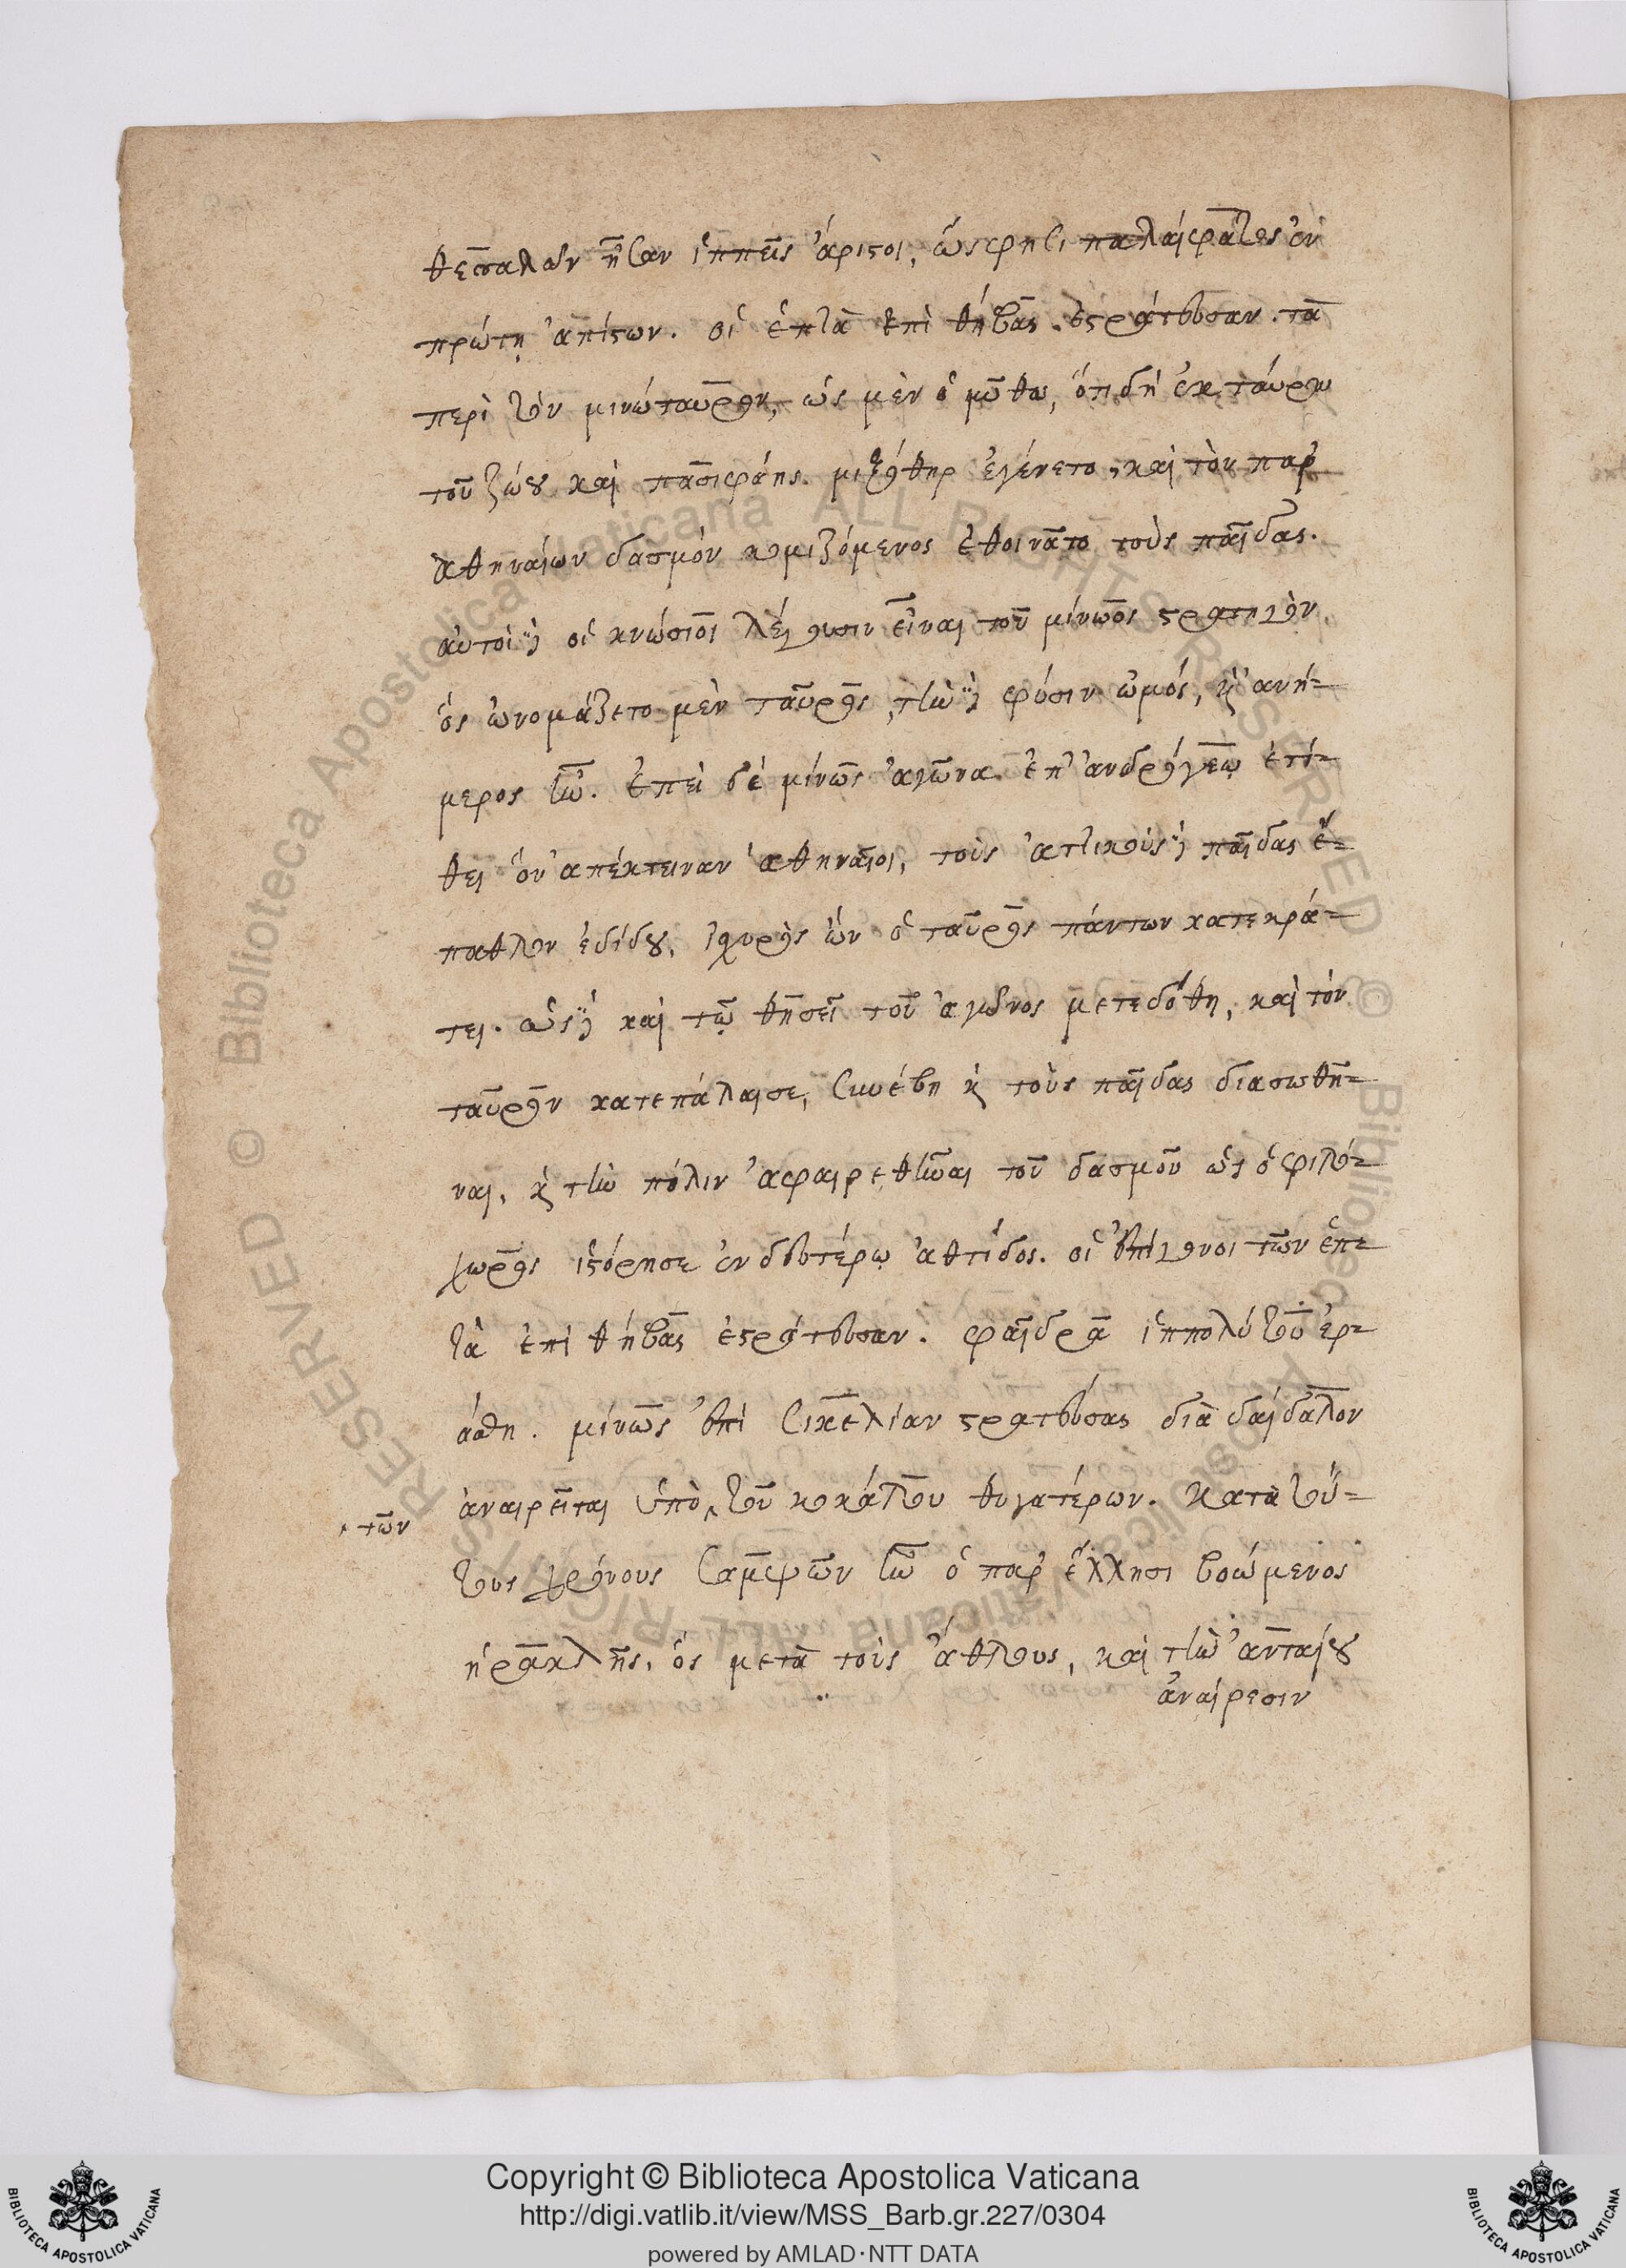 θεσσαλῶν ἦσαν ἱππεῖς ἄριστοι, ὥς φησι παλαίφατος ἐν
πρώτῃ ἀπίστων. οἱ ἑπτὰ ἐπὶ θήβας ἐστράτευσαν. τὰ
περὶ τὸν μινώταυρον, ὡς μὲν ὁ μῦθος, ὅτι δὴ ἐκ ταύρου
τοῦ ζώου καὶ πασιφάης. μιξόθηρ ἐγένετο, καὶ τὸν παρ
ἀθηναίων δασμὸν κομιζόμενος ἐθοινᾶτο τοὺς παῖδας.
αὐτοὶ δὲ οἱ κνώσιοι λέγουσιν εἶναι τοῦ μίνωος στρατηγὸν
ὃς ὠνομάζετο μὲν ταῦρος, τὴν δὲ φύσιν ὠμός, κ ἀνή-
μερος ἦν. ἐπεὶ δὲ μίνως ἀγῶνα ἐπ' ἀνδρόγεῳ ἐτί-
θει ὃν ἀπέκτειναν ἀθηναῖοι, τοὺς ἀττικοὺς δὲ παῖδας ἔ-
παθλον ἐδίδου, ἰσχυρὸς ὢν ὁ ταῦρος πάντων κατεκρά-
τει. ὡς δὲ καὶ τῷ θησεῖ τοῦ ἀγῶνος μετεδόθη, καὶ τὸν
ταῦρον κατεπάλαισε, συνέβη κ τοὺς παῖδας διασωθῆ-
ναι, κ τὴν πόλιν ἀφαιρεθῆναι τοῦ δασμοῦ ὡς ὁ φιλό-
χωρος ἱστόρησε ἐν δευτέρῳ ἀθτίδος. οἱ ἐπίγονοι τῶν ἑπ-
τὰ ἐπὶ θήβας ἐστράτευσαν. φαῖδρα ἱππολύτου ἐρ-
άσθη. μίνως ἐπὶ σικελίαν στρατεύσας διὰ δαίδαλον
ἀναιρεῖται ὑπὸ τοῦ κοκάλου θυγατέρων. κατὰ τού-
τῶν
τους χρόνους σαμψὼν ἦν ὁ παρ ἕλλησι βοώμενος
ἡρακλῆς, ὃς μετὰ τοὺς ἄθλους, καὶ τὴν ἀνταίου
ἀναίρεσιν
Copyright © Biblioteca Apostolica Vaticana
http://digi.vatlib.it/view/MSS_Barb.gr.227/0304
powered by AMLAD·NTT DATA